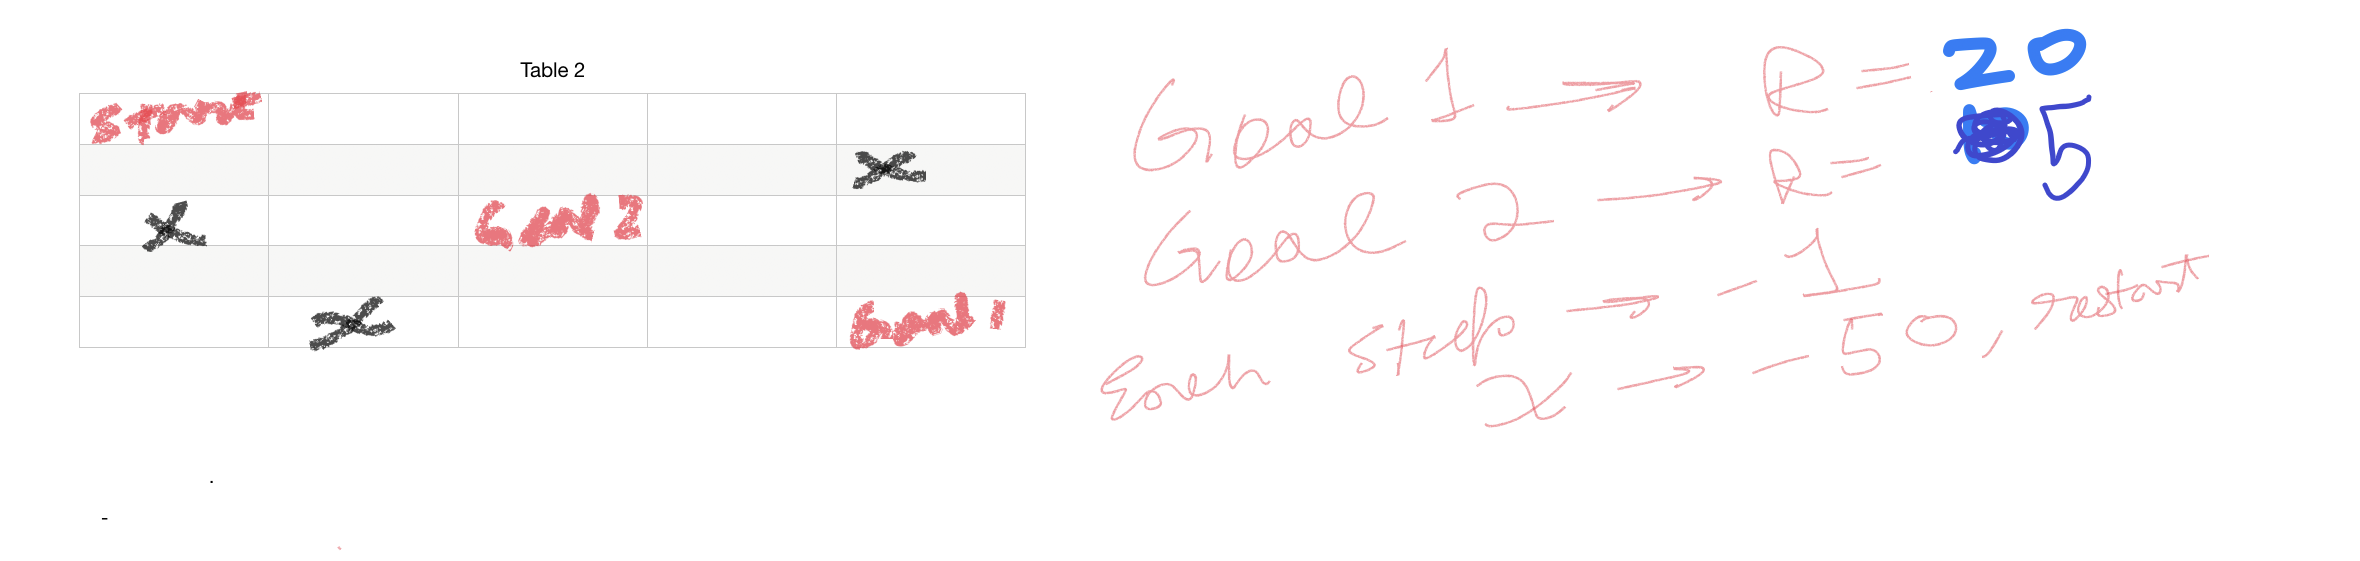 Table 2
START
X
X Goal 2
X Goal 1
Goal 1 → R = 20
Goal 2 → R = 5
Each step → -1
x → -50, restart